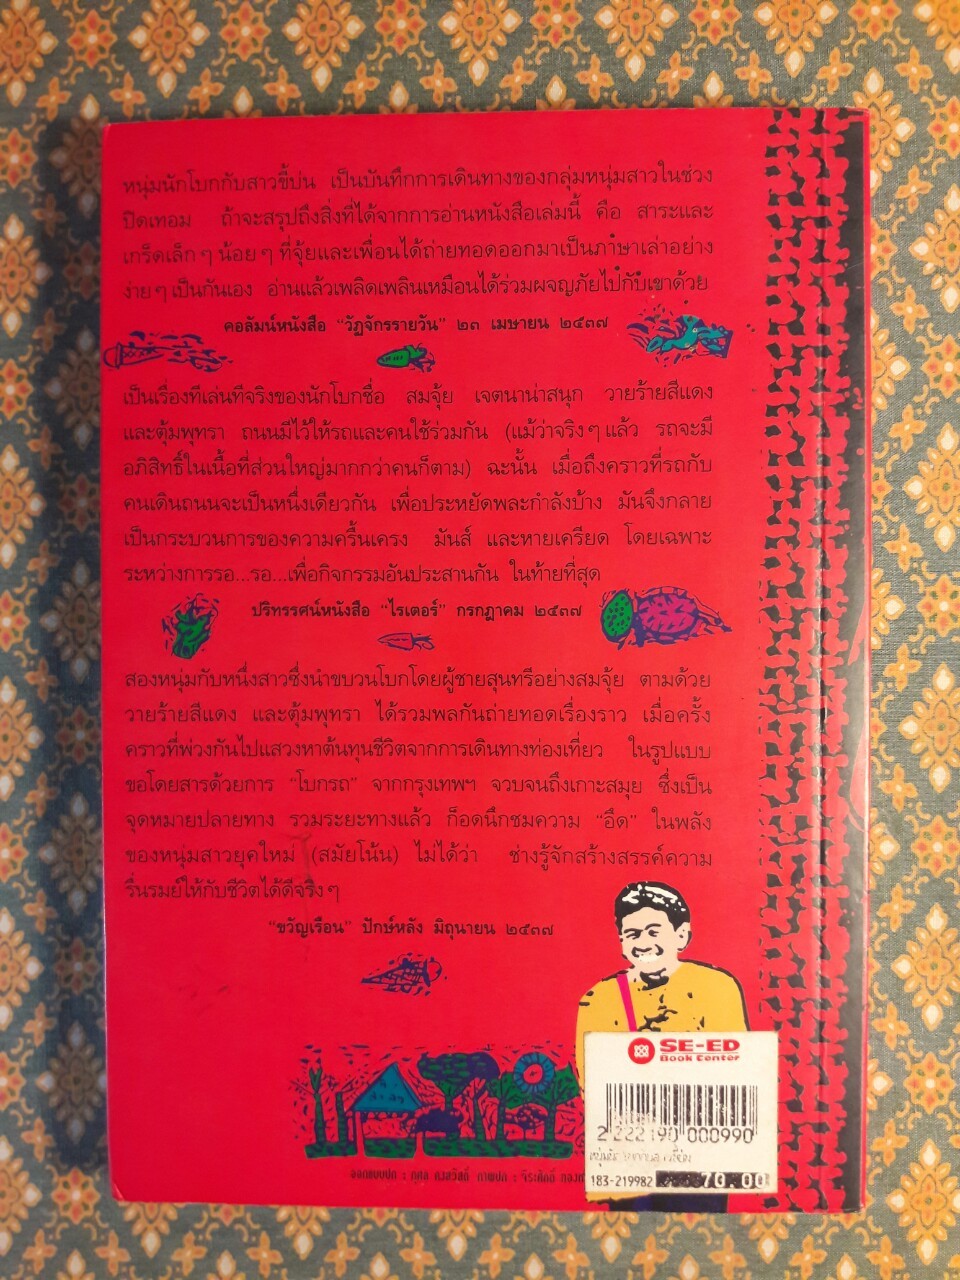 หนุ่มนักโบกกับสาวขี้บ่น เป็นบันทึกการเดินทางของกลุ่มหนุ่มสาวในช่วง
ปิดเทอม ถ้าจะสรุปถึงสิ่งที่ได้จากการอ่านหนังสือเล่มนี้ คือ สาระและ
เกร็ดเล็กๆ น้อยๆ ที่จุ้ยและเพื่อนได้ถ่ายทอดออกมาเป็นภาษาเล่าอย่าง
ง่ายๆ เป็นกันเอง อ่านแล้วเพลิดเพลินเหมือนได้ร่วมผจญภัยไปกับเขาด้วย
คอลัมน์หนังสือ "วัฏจักรรายวัน" ๒๓ เมษายน ๒๕๓๗
เป็นเรื่องทีเล่นทีจริงของนักโบกชื่อ สมจุ้ย เจตนาน่าสนุก วายร้ายสีแดง
และตุ้มพุทรา ถนนมีไว้ให้รถและคนใช้ร่วมกัน (แม้ว่าจริงๆ แล้ว รถจะมี
อภิสิทธิ์ในเนื้อที่ส่วนใหญ่มากกว่าคนก็ตาม) ฉะนั้น เมื่อถึงคราวที่รถกับ
คนเดินถนนจะเป็นหนึ่งเดียวกัน เพื่อประหยัดพละกำลังบ้าง มันจึงกลาย
เป็นกระบวนการของความครื้นเครง มันส์ และหายเครียด โดยเฉพาะ
ระหว่างการรอ...รอ...เพื่อกิจกรรมอันประสานกัน ในท้ายที่สุด
ปริทรรศน์หนังสือ "ไรเตอร์" กรกฎาคม ๒๕๓๗
สองหนุ่มกับหนึ่งสาวซึ่งนำขบวนโบกโดยผู้ชายสุนทรีอย่างสมจุ้ย ตามด้วย
วายร้ายสีแดง และตุ้มพุทรา ได้รวมพลกันถ่ายทอดเรื่องราว เมื่อครั้ง
คราวที่พ่วงกันไปแสวงหาต้นทุนชีวิตจากการเดินทางท่องเที่ยว ในรูปแบบ
ขอโดยสารด้วยการ "โบกรถ" จากกรุงเทพฯ จวบจนถึงเกาะสมุย ซึ่งเป็น
จุดหมายปลายทาง รวมระยะทางแล้ว ก็อดนึกชมความ "อึด" ในพลัง
ของหนุ่มสาวยุคใหม่ (สมัยโน้น) ไม่ได้ว่า ช่างรู้จักสร้างสรรค์ความ
รื่นรมย์ให้กับชีวิตได้ดีจริงๆ
"ขวัญเรือน" ปักษ์หลัง มิถุนายน ๒๕๓๗
SE-ED
Book Center
2 222190 000990
183-219982 70.00
ออกแบบปก : ภาพปก :